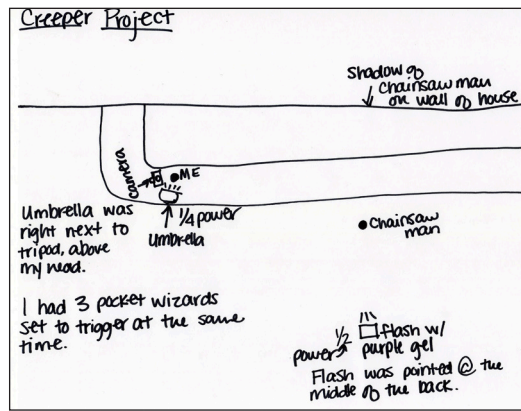 Creeper Project
Shadow of
Chainsaw man
on wall of house
camera
ME
1/4 power
Umbrella
Umbrella was
right next to
tripod, above
my head.
Chainsaw
man
I had 3 pocket wizards
set to trigger at the same
time.
1/2
power
flash w/
purple gel
Flash was pointed @ the
middle of the back.